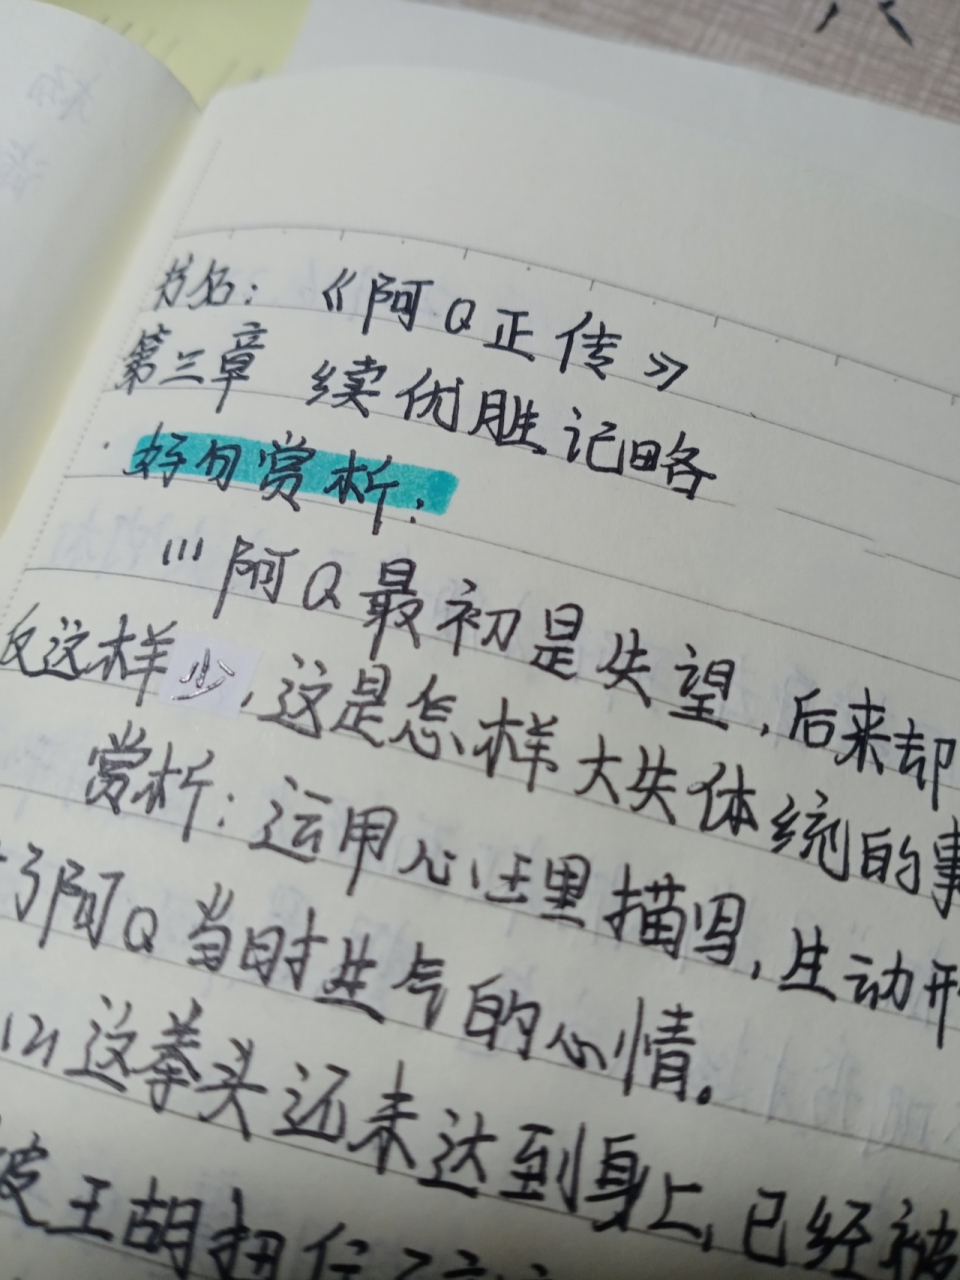 书名：《阿Q正传》
第三章 续优胜记略
·好句赏析：
(1)阿Q最初是失望，后来却
反这样少，这是怎样大失体统的事
赏析：运用心理描写，生动形
了阿Q当时生气的心情。
(2)这拳头还未达到身上，已经被
被王胡扭住了